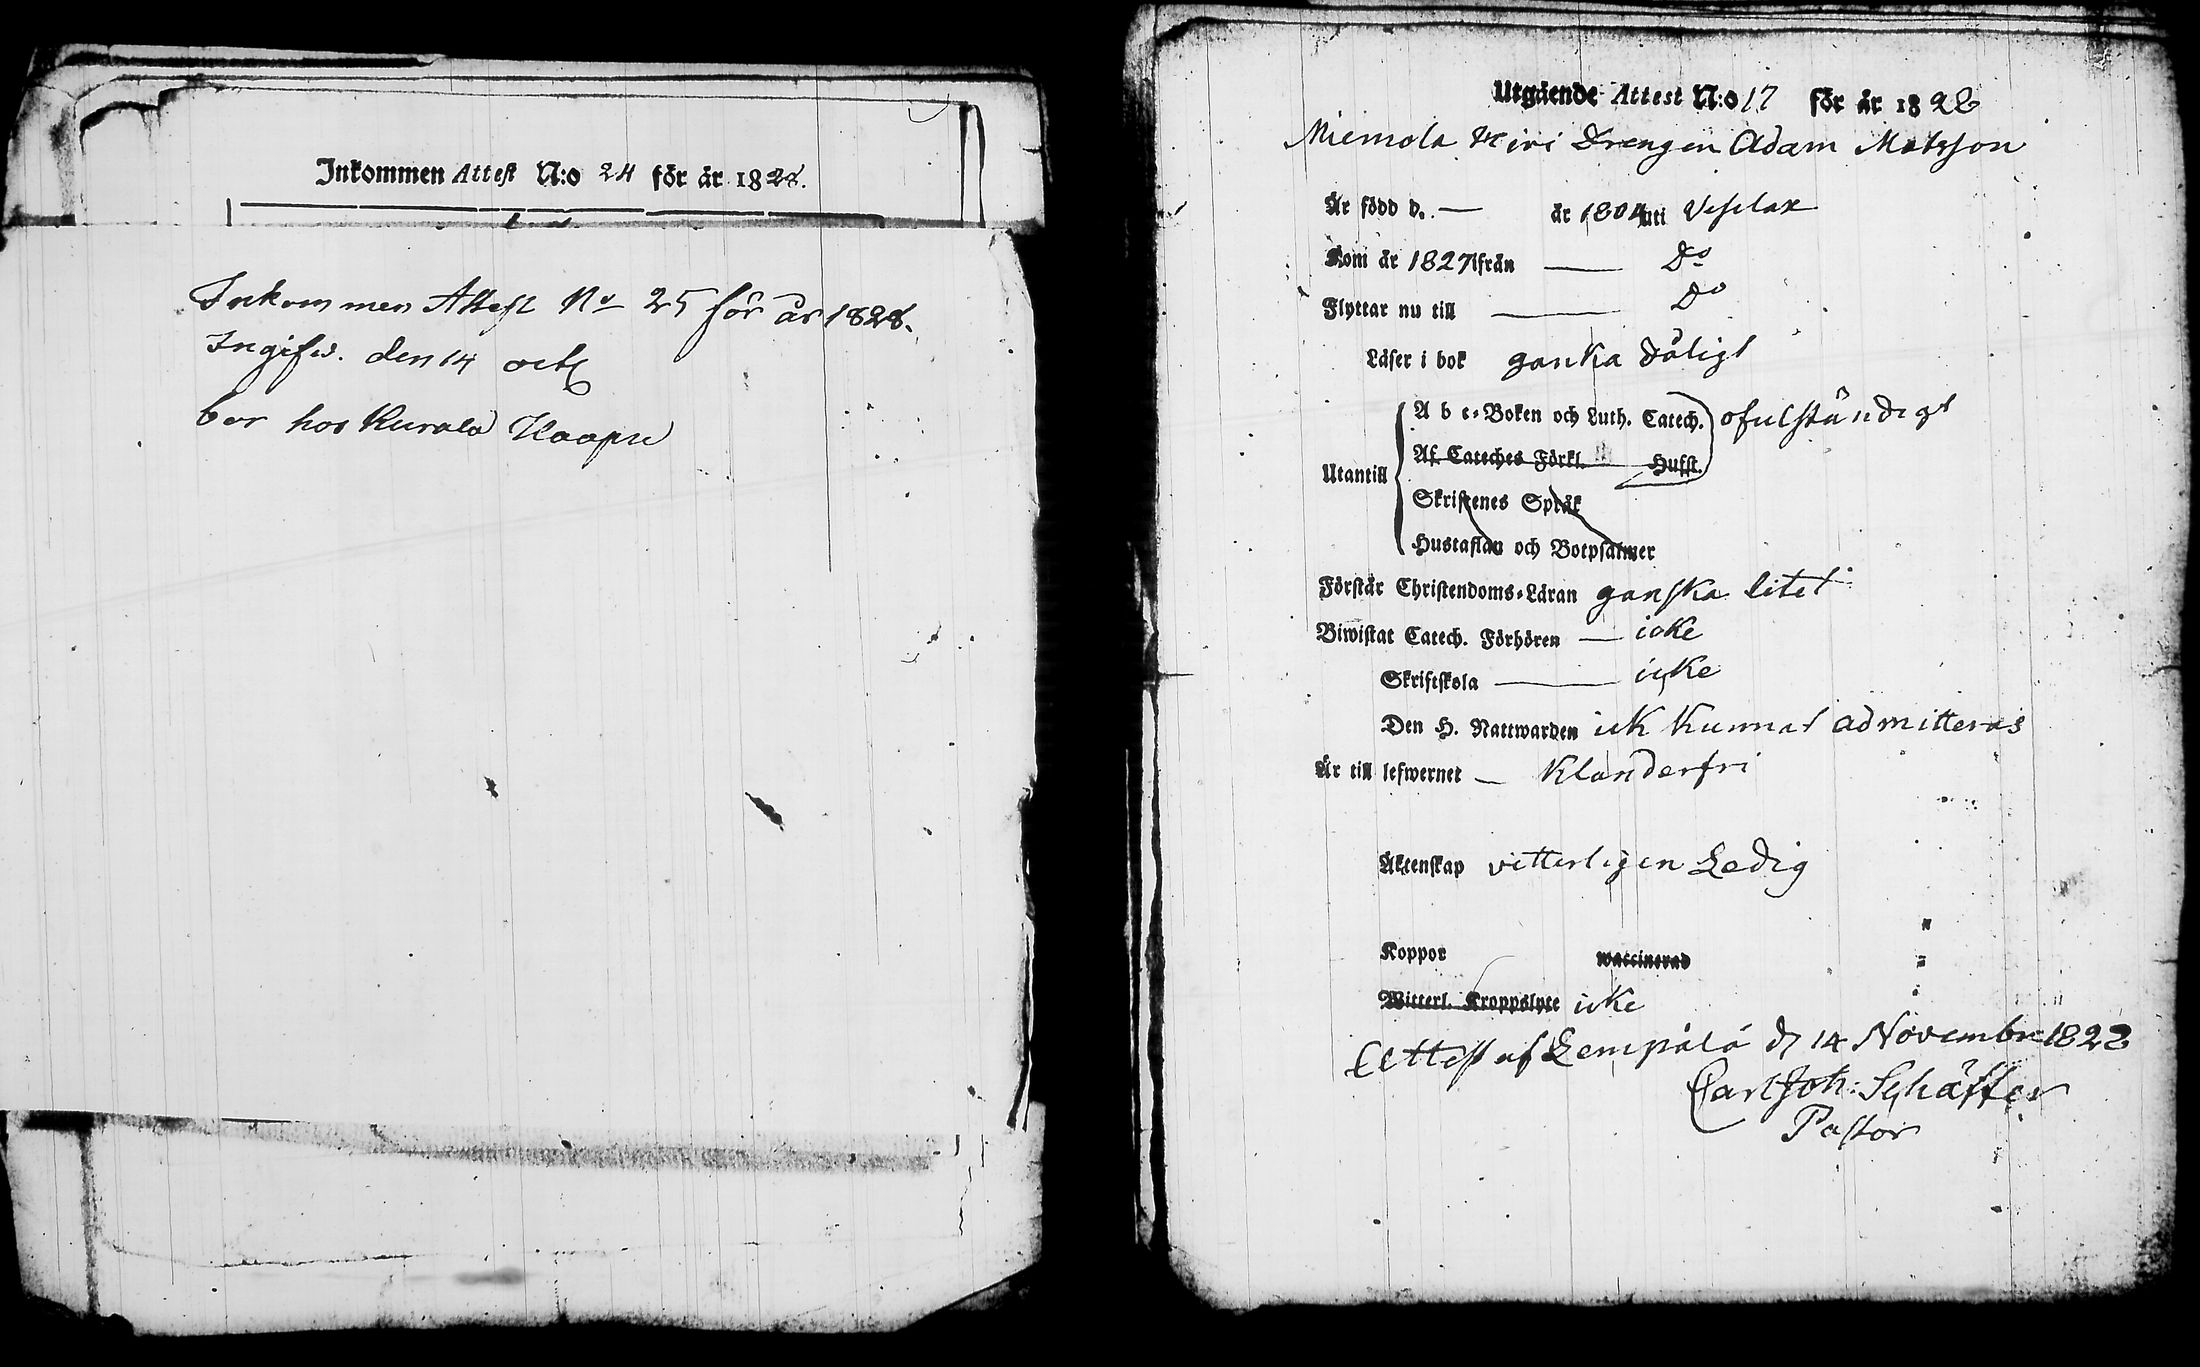 Inkommen Attest N:o 24 för år 1828.
Inkommen Attest No 25 för år 1828.
Ingifw. den 14 oct
bor hos Kurala Kaapu
Utgående Attest N:o 17 för år 1828
Miemola Drengen Adam Matsson
Är född d. — år 1804 uti Vesilax
Kom år 1827 ifrån — Do
Flyttar nu till — Do
Läser i bok ganska dåligt
Utantill
A b c-Boken och Luth. Catech. ofulständigt
Af. Cateches Förkl. Husst.
Skriftenes Språk
Hustaflan och Botpsalmer
Förstår Christendoms-Läran ganska litet
Biwistat Catech. Förhören — icke
Skriftskola — icke
Den H. Nattwarden ick kunnat admitteras
Är till lefwernet — Klanderfri
Äktenskap vitterligen Ledig
Koppor waccinerad
Witterl. Kroppslyte icke
Attest af Lempälä d 14 Novembr 1828
Carl Joh: Schäffer
Pastor